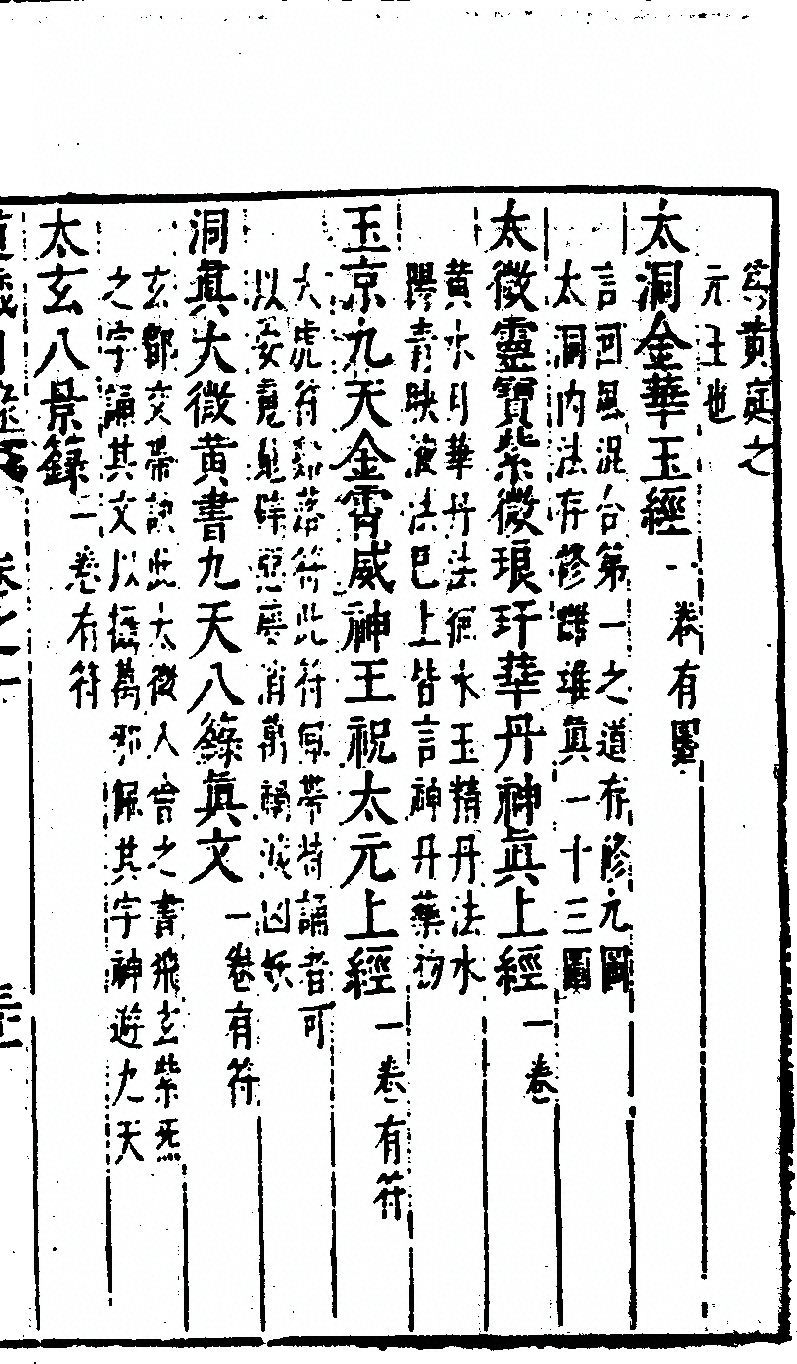 爲黃庭之
元王也
太洞金華玉經一卷有圖
言回風混合第一之道存修元圖
太洞內法存修雌雄眞一十三圖
太微靈寶紫微琅玕華丹神眞上經一卷
黃水月華丹法徊水玉精丹法水
陽青映液法巳上皆言神丹藥物
玉京九天金霄威神王祝太元上經一卷有符
大虎符豁落符此符佩帶持誦者可
以妄竟魄辟惡夢消萬禍滅凶妖
洞眞太微黃書九天八籙眞文一卷有符
玄都交帶訣此太微人會之書飛玄紫炁
之字誦其文以攝萬邪佩其字神遊九天
太玄八景籙一卷有符
道藏目錄 卷之一